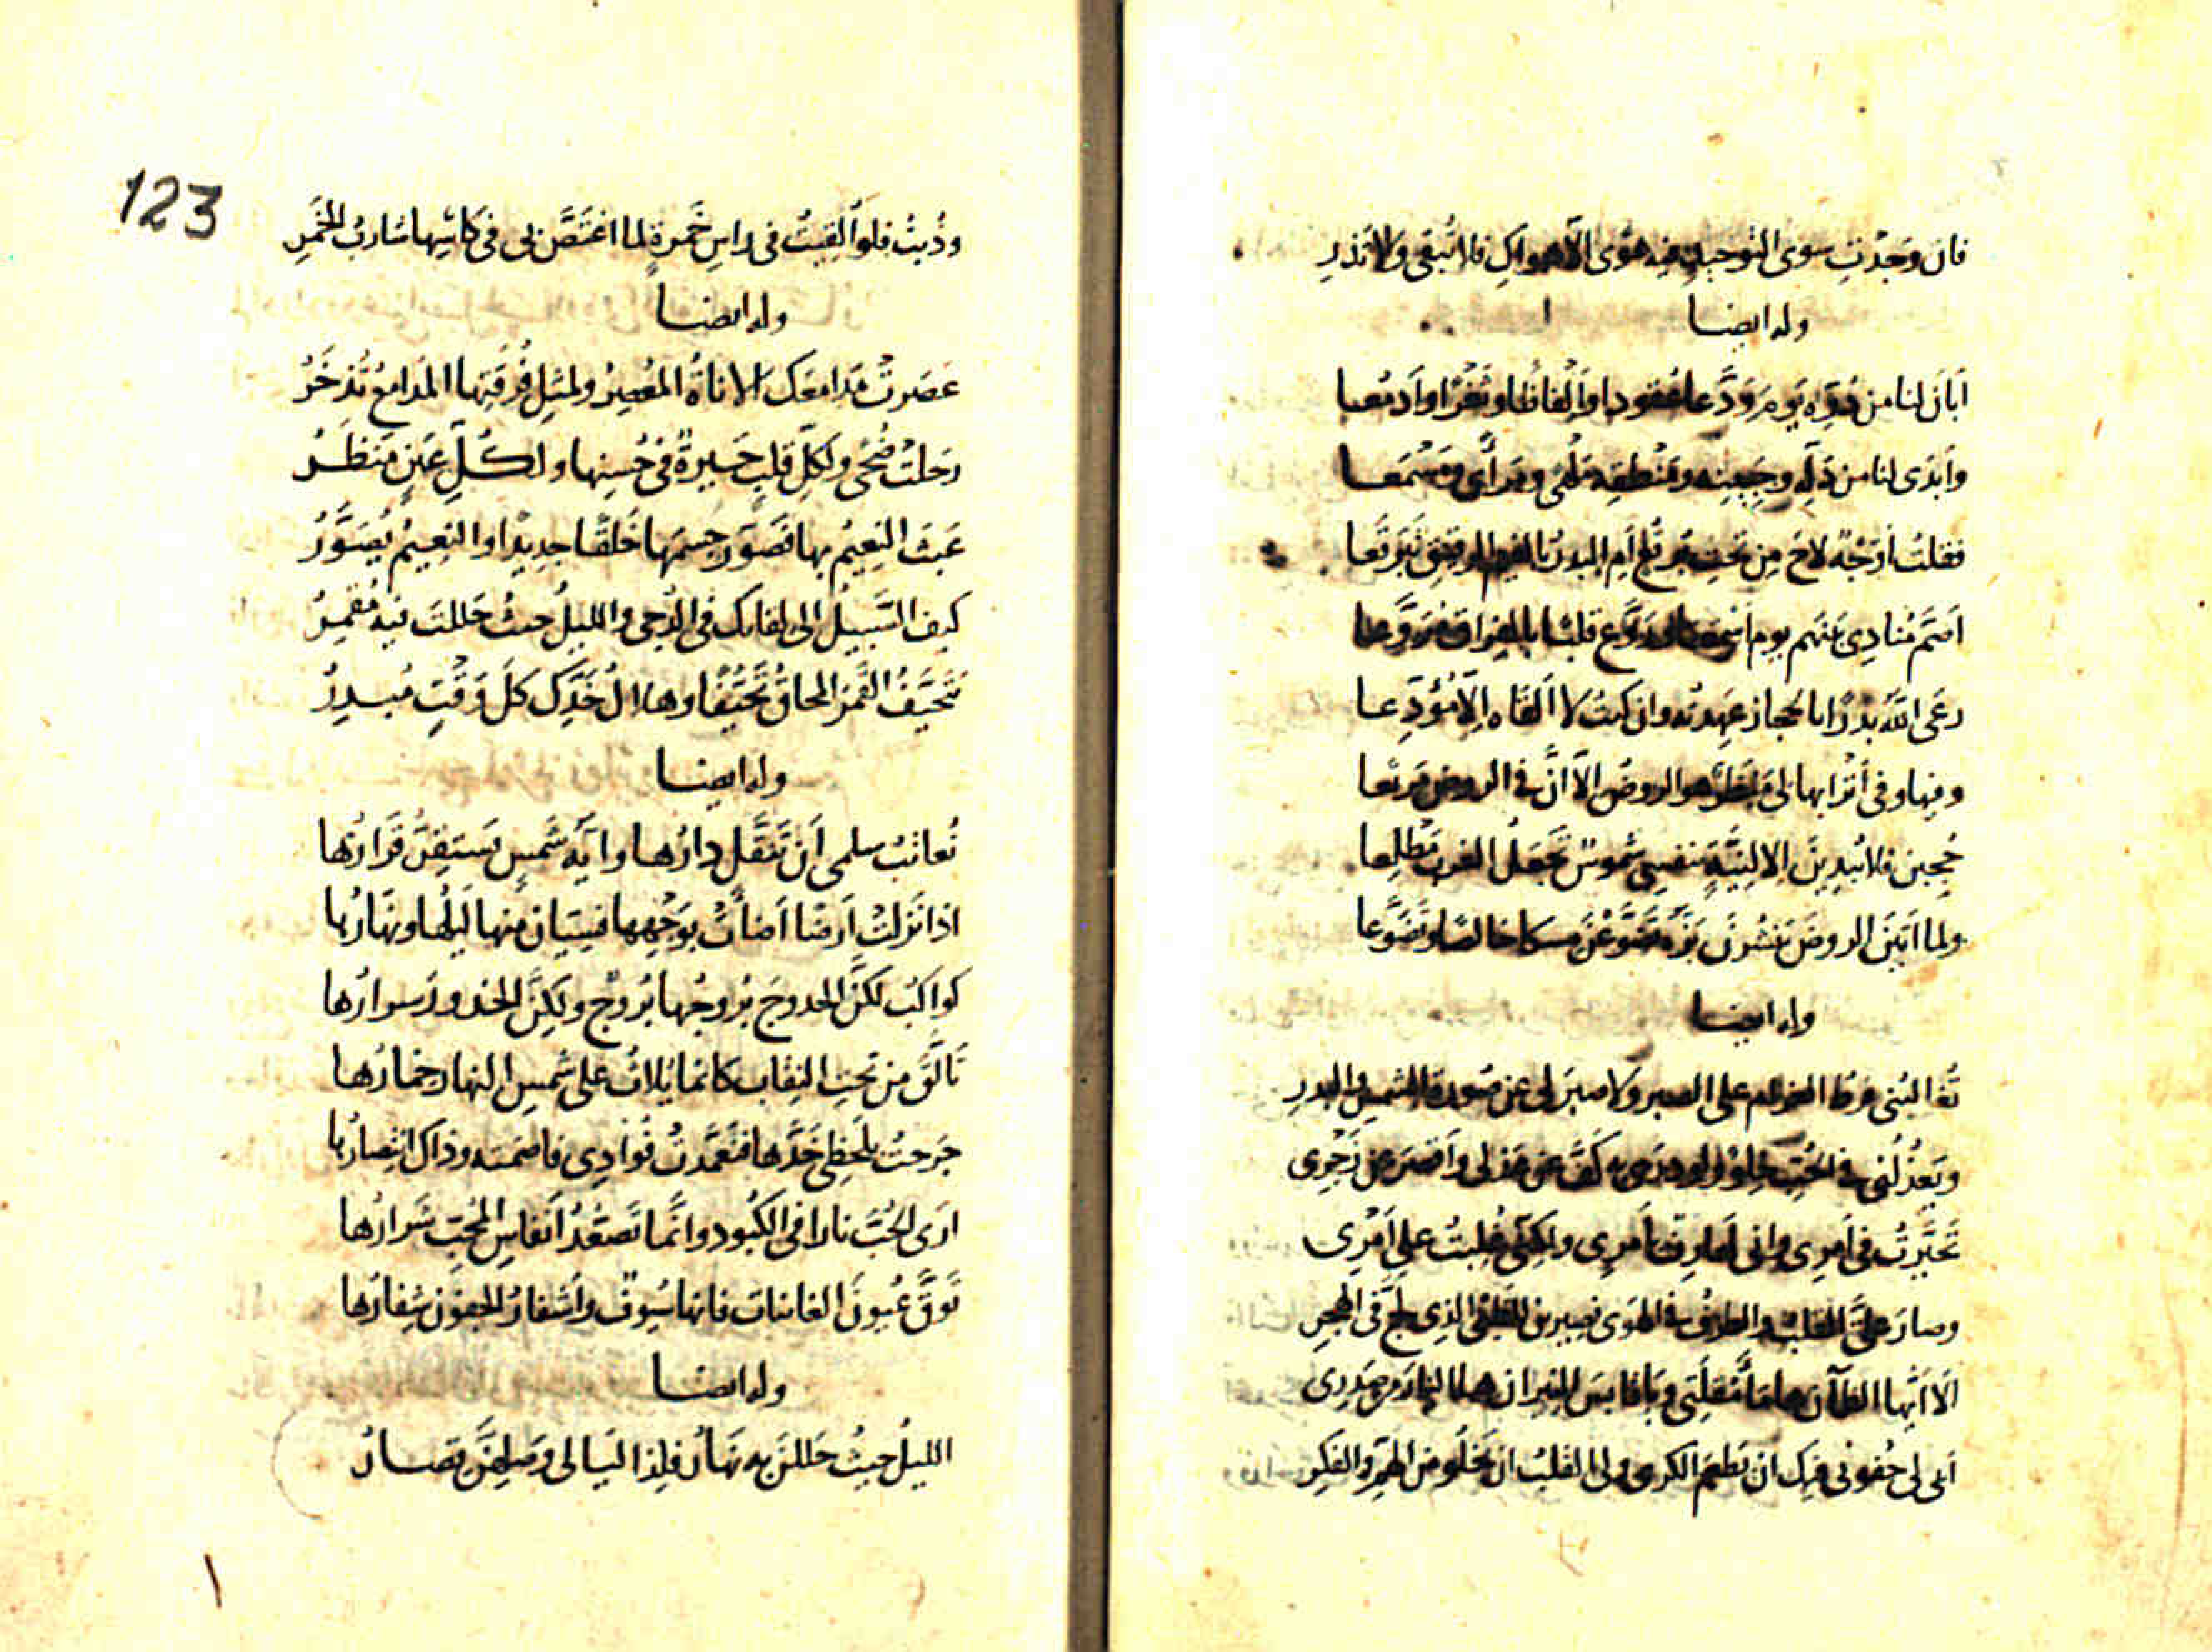 فان وَجَدْتِ سوى التوحيدِ فيه هوًى الّا هواكِ فلا تُبقى ولا تَذرِ
وله ايضا
اَبانَ لنا من دُرِّه يومَ وَدَّعا عُقودا واَلفاظا وثَغرًا واَدمُعا
واَبدَى لنا من دَلِّه وجَبينِه ومَنطقِه مَلْهًى ومَرأًى ومَسْمَعا
فقلتُ أوَجْهٌ لاحَ مِن تحتِ بُرقُعٍ اَمِ البدرُ بالغيمِ الرقيقِ تَبَرقَعا
اَصَمَّ مُنادِى بَينهم يوم اَسْمَعا ورَوَّع قلبًا بالفِراقِ مُرَوَّعا
رعَى اللّهُ بدرًا بالحجاز عَهِدتُه وان كنتُ لا اَلقاه اِلّا مُوَدِّعا
وفيها وفى اَترابها لى هو الروضُ الّا اَنَّ فى الروض مَرتعا
حُجِبنَ فلا يُبدِينَ الا بنفسى شموسٌ تَجعَلُ الغربَ مَطلِعا
ولما اَتَينَ الروضَ يَنشُرنَ بَزَّه تَضَوَّعنَ مسكا خالصًا وتَضَوَّعا
وله ايضا
تُغالبُنى فرطُ الغرامِ على الصبر ولا صبرَ لى عن صورة الشمسِ والبدرِ
ويَعذُلُنى فى الحُبِّ خِلوٌ ولو دَرَى به كَفَّ عن عذلى واَقصَرَ عن زَجْرِى
تَحيَّرتُ فى اَمرِى وانى لعارِفٌ باَمرِى ولكنّى غُلِبتُ على اَمْرِى
وصارَ علىَّ القلبُ والطرفُ فى الهَوى نصيرينِ للظبى الذى لجَّ فى الهجرِ
اَلا اَيُّها الظمآن ها ماءُ مُقلَتى ويا قابسَ النيران ها النارُ من صَدرِى
اَبى لى جُفونى فيكِ ان تَطعَمَ الكرى ولى القلبُ ان يَخلُو من الهمِّ والفكرِ
123
وذُبتُ فلو اُلقِيتُ فى راسِ خَمرةٍ لما اغتَصَّ بى فى كاسِها شاربُ الخَمرِ
وله ايضا
عَصَرتْ مَدامعَك الاناةُ المُعصِرُ ولمثلِ فُرقَتِها المدامعُ تُذخَرُ
رحلتْ ضُحًى ولكلِّ قلبٍ حَسيرةٌ فى حُسنِها ولكلِّ عَينٍ مَنظَرُ
عَبَثَ النعِيمُ بها فصَوّرَ جسمَها خَلقًا جديدًا والنعِيمُ يُصَوَّرُ
كيف السَّبيلُ الى لقائكِ فى الدُجى والليلُ حيثُ حَللتَ فيه مُقمِرُ
تتَحيَّفُ القمرَ المحاقُ تَحَيُّفًا وهلالُ خَدِّكِ كلَّ وَقتٍ مُبدِرُ
وله ايضا
نُعاتبُ سلمى اَن تَنَقَّل دارُها واَيّةُ شَمسٍ يَستَقِرُّ قَرارُها
اذا نَزلتْ اَرضًا اَضاءتْ بوَجهِها فسِيّان منها لَيلُها ونهارُها
كواكبُ لكنَّ الحدوجَ بُروجُها بُروجٌ ولكنَّ الخدورَ سوارُها
تَالَّقُ من تحتِ النِقابِ كانما يُلاثُ على شمسِ النهار خِمارُها
جَرحتُ بلَحظى خَدَّها فتَعمَّدتْ فُوادِى فاصمَته وذاك انتِصارُها
ارَى الحُبَّ نارا فى الكُبود وانّما تَصَعُّدُ اَنفاسِ المُحبِّ شَرارُها
تَوَقَّ عُيونَ الغانيات فانها سُيوفٌ واَشفارُ الجفون شِفارُها
وله ايضا
الليلُ حيثُ حَللنَ به نَهارُ فلِذا الليالى وَصلِهنَّ قصارُ